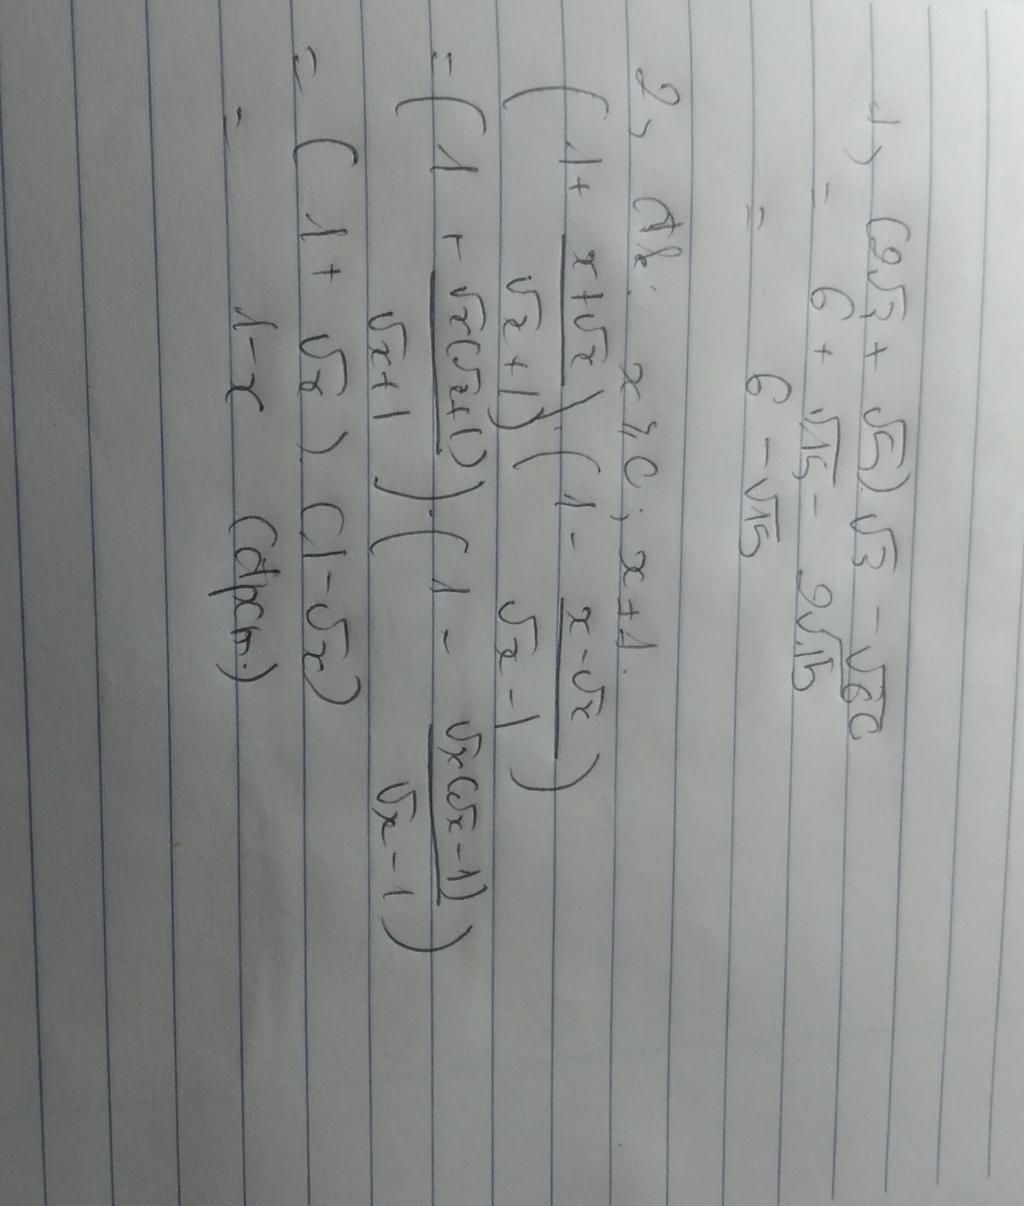 1, (2√3 + √5).√3 - √60
= 6 + √15 - 2√15
= 6 - √15
2, đk: x ≥ 0; x ≠ 1.
(1 + (x+√x)/(√x+1)).(1 - (x-√x)/(√x-1))
= (1 + √x(√x+1)/(√x+1)).(1 - √x(√x-1)/(√x-1))
= (1 + √x) (1-√x)
= 1-x (đpcm.)